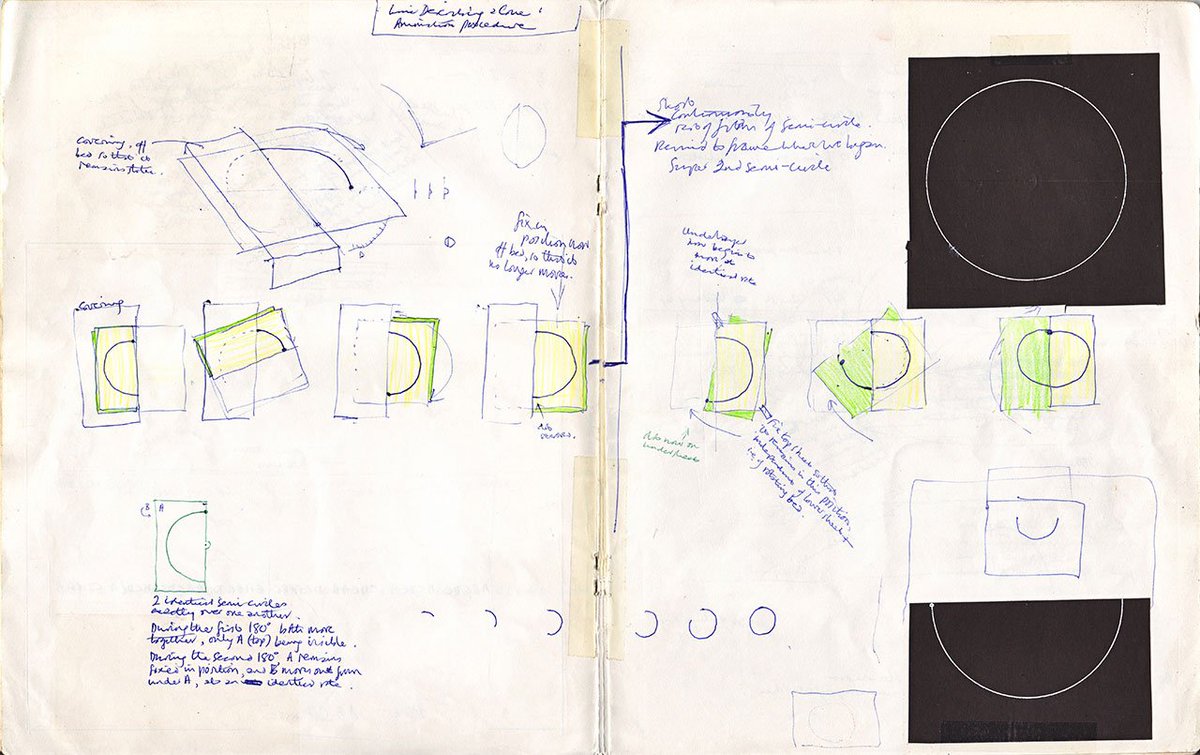 Line Describing a Cone:
Animation procedure
covering, off
bed so that it
remains static.
fix in
position
off bed, so that it
no longer moves.
covering
Shoot
continuously
rest of film of semi-circle.
Rewind to frame where we began.
Super 2nd semi-circle
under layer
now begins to
move at
identical rate
Fix top sheet so that
it remains in this position,
independent of lower sheet &
of rotating bed.
B A
2 identical semi-circles
exactly over one another.
During the first 180° both move
together, only A (top) being visible.
During the second 180°, A remains
fixed in position, and B moves out from
under A, at an identical rate.